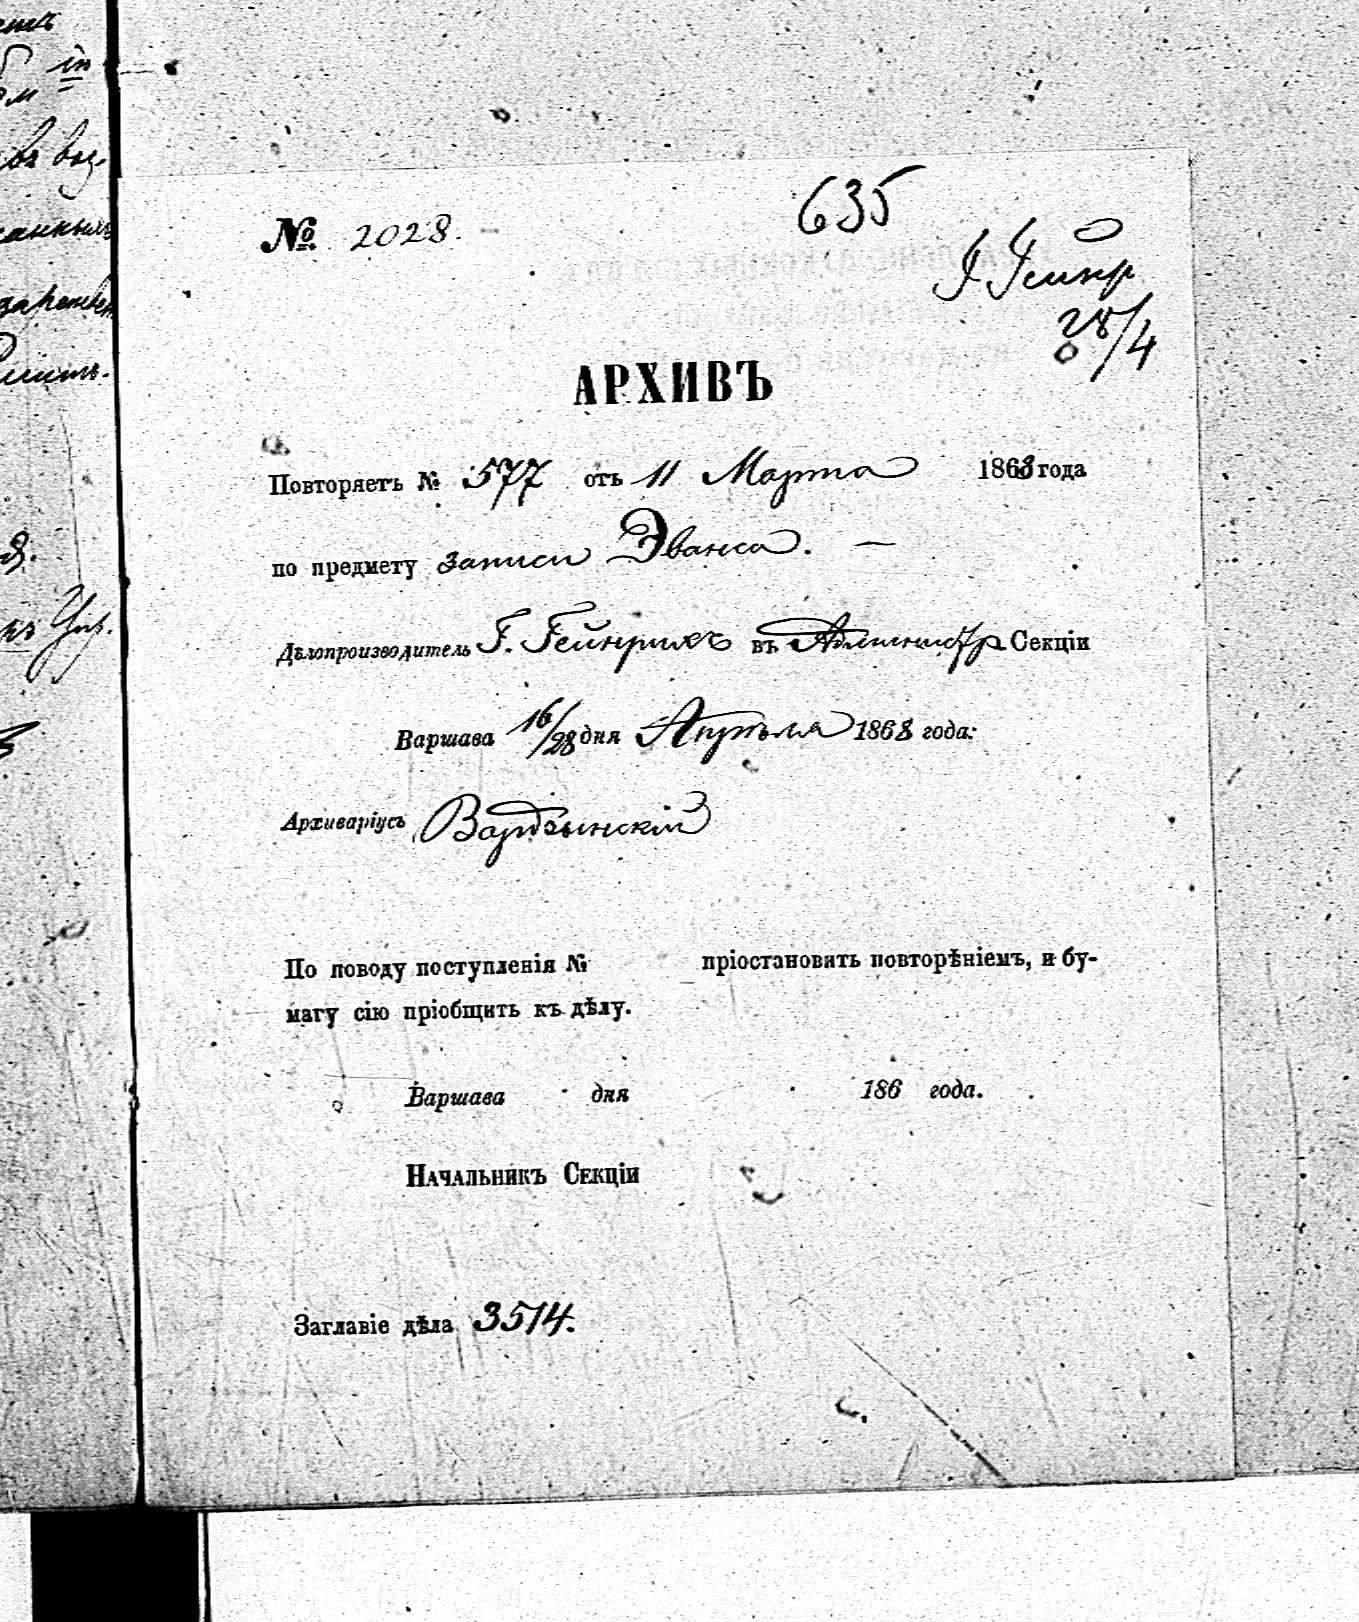 635
№ 2028.
Г Гейнр
28/4
АРХИВЪ
Повторяетъ № 577 отъ 11 Марта 1868 года
по предмету записи Эванса. —
Дѣлопроизводитель Г. Гейнрихъ въ Администр Секціи
Варшава 16/28 дня Апрѣля 1868 года.
Архиваріусъ
По поводу поступленія № пріостановить повторѣніемъ, и бу-
магу сію пріобщить къ дѣлу.
Варшава дня 186 года.
Начальникъ Секціи
Заглавіе дѣла 3514.